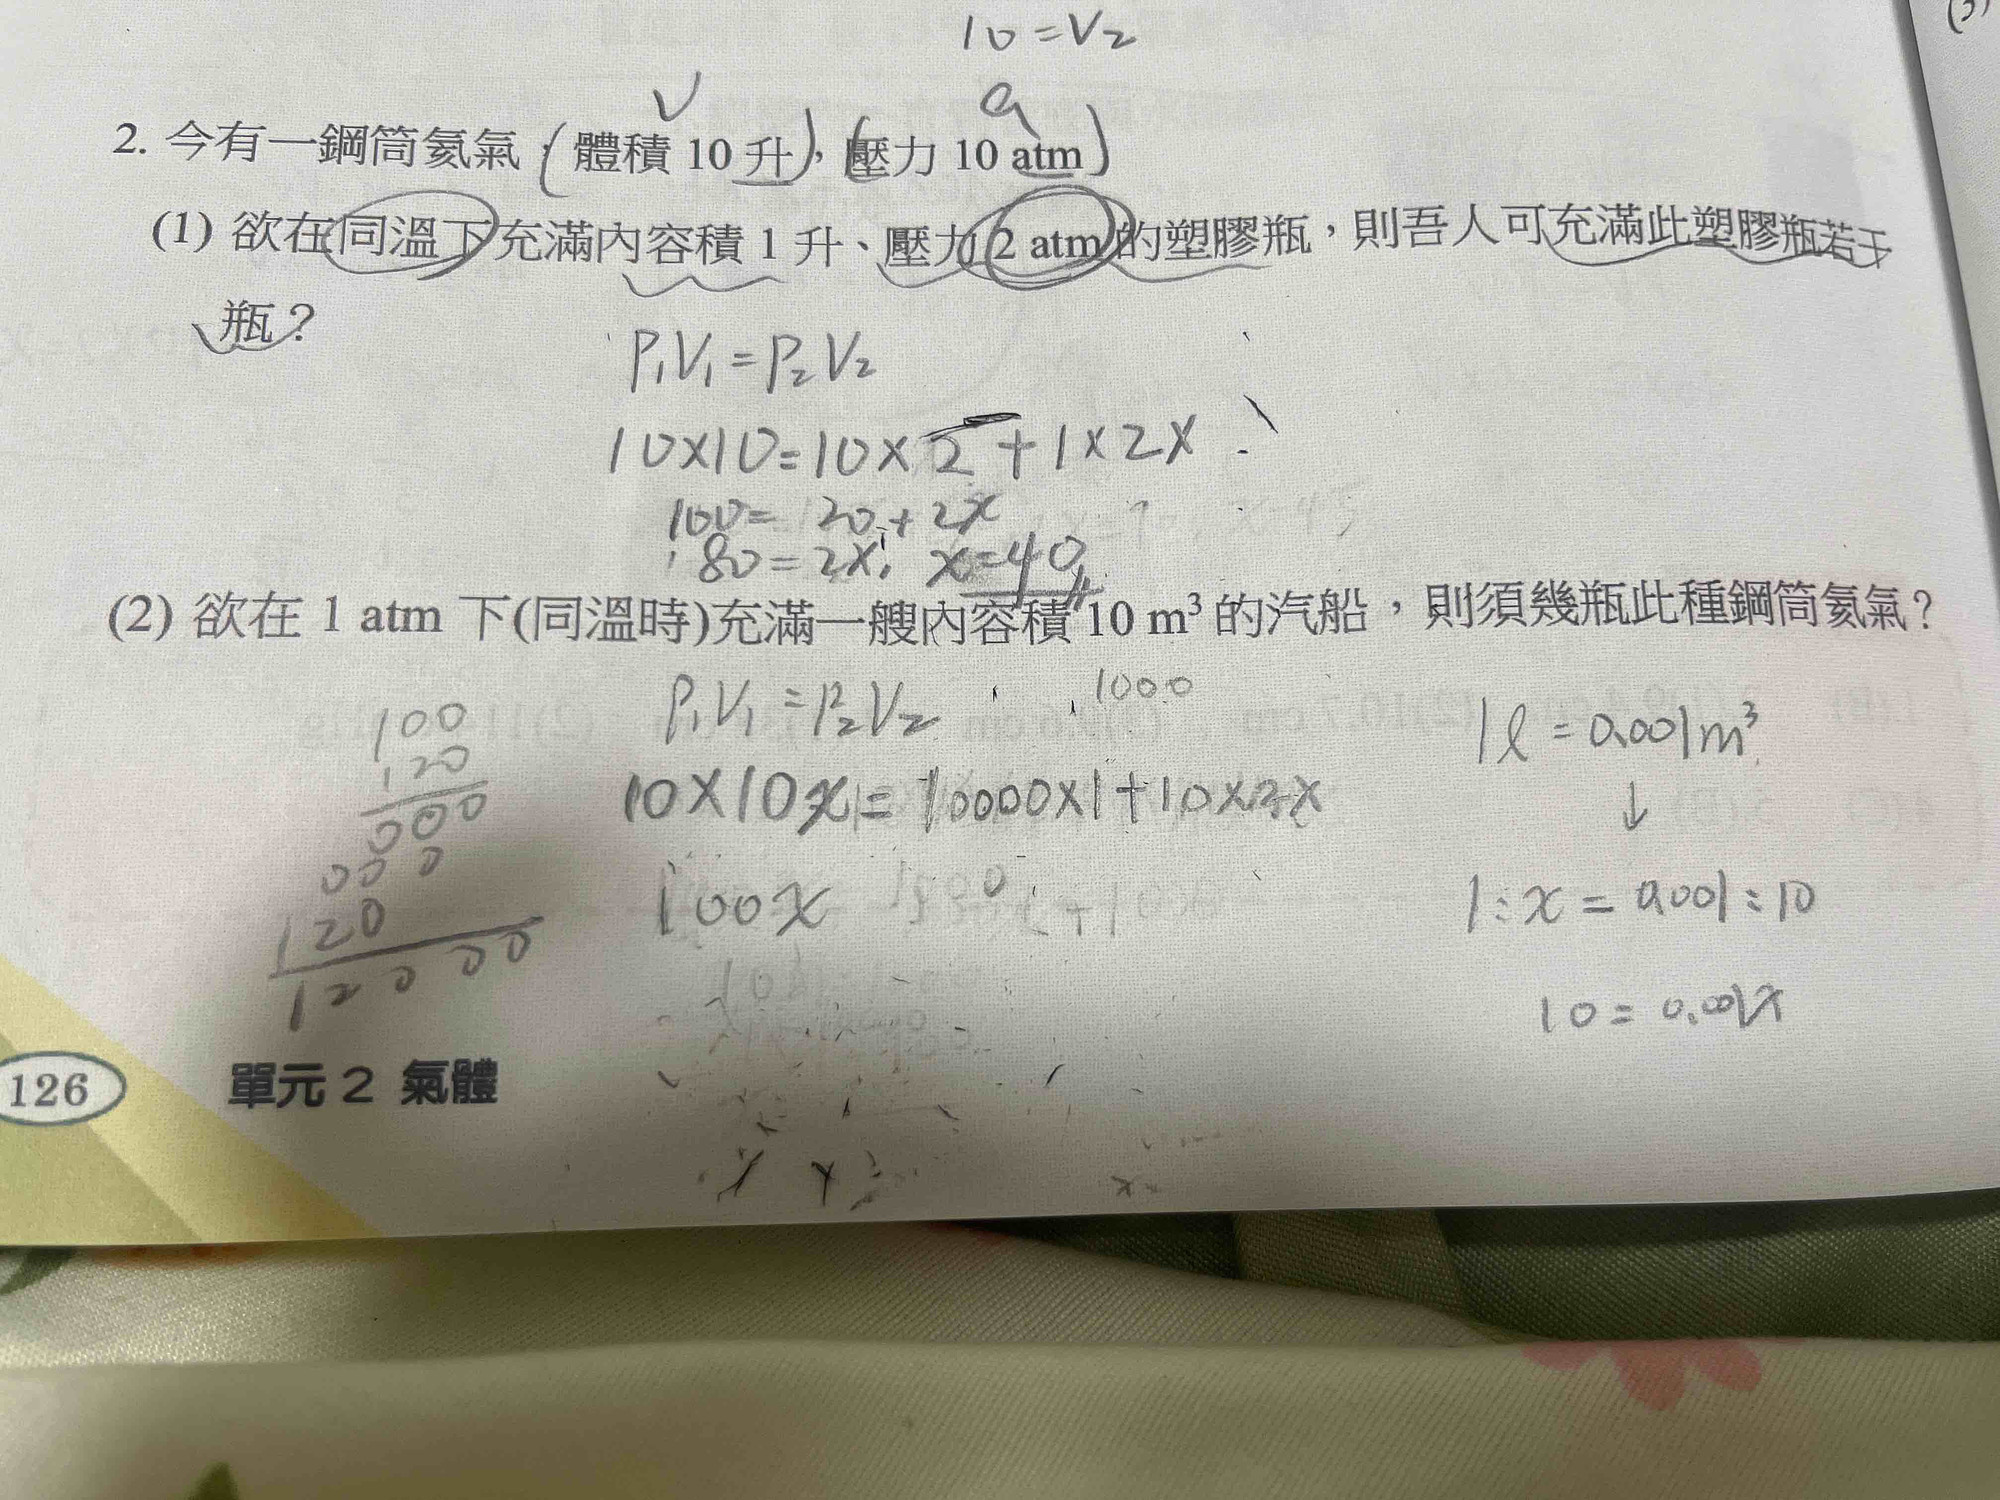 10=V2
V
a
2. 今有一鋼筒氦氣(體積 10 升),壓力 10 atm)
(1) 欲在同溫下充滿內容積 1 升、壓力 2 atm 的塑膠瓶,則吾人可充滿此塑膠瓶若干
瓶?
P1V1=P2V2
10×10=10×2+1×2X
100=20+2x
80=2X, x=40
(2) 欲在 1 atm 下(同溫時)充滿一艘內容積 10 m³ 的汽船,則須幾瓶此種鋼筒氦氣?
P1V1=P2V2
1000
10×10x=10000×1+10×2x
100x
100
120
000
000
120
12000
1l=0.001m³
↓
1:x=0.001:10
10=0.001x
126
單元 2 氣體